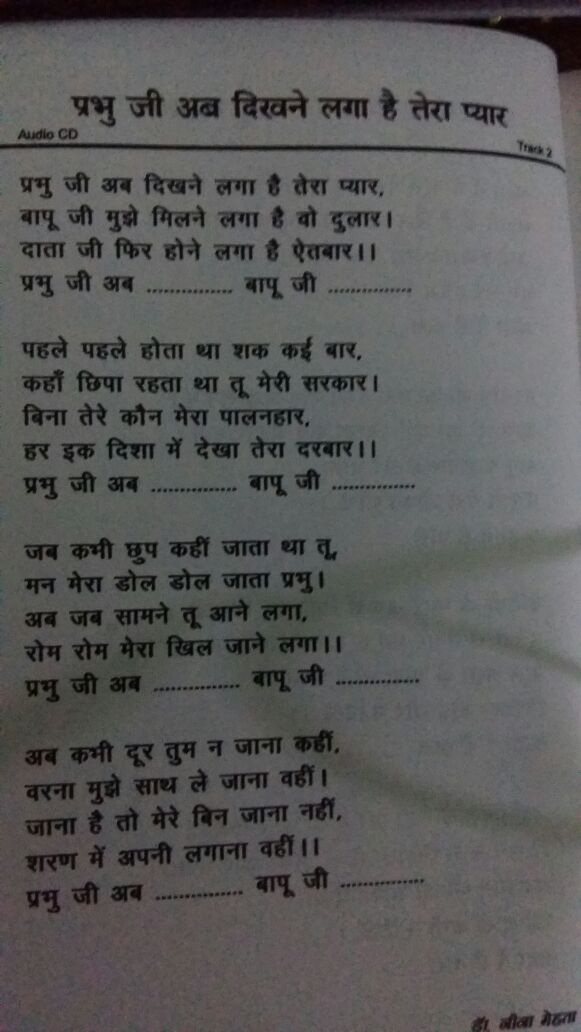 प्रभु जी अब दिखने लगा है तेरा प्यार
Audio CD
Track 2
प्रभु जी अब दिखने लगा है तेरा प्यार,
बापू जी मुझे मिलने लगा है वो दुलार।
दाता जी फिर होने लगा है ऐतबार।।
प्रभु जी अब ............... बापू जी ...............
पहले पहले होता था शक कई बार,
कहाँ छिपा रहता था तू मेरी सरकार।
बिना तेरे कौन मेरा पालनहार,
हर इक दिशा में देखा तेरा दरबार।।
प्रभु जी अब ............... बापू जी ...............
जब कभी छुप कहीं जाता था तू,
मन मेरा डोल डोल जाता प्रभु।
अब जब सामने तू आने लगा,
रोम रोम मेरा खिल जाने लगा।।
प्रभु जी अब ............... बापू जी ...............
अब कभी दूर तुम न जाना कहीं,
वरना मुझे साथ ले जाना वहीं।
जाना है तो मेरे बिन जाना नहीं,
शरण में अपनी लगाना वहीं।।
प्रभु जी अब ............... बापू जी ...............
डॉ. मेहता